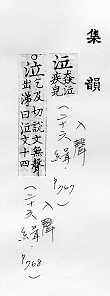 集韻
泣 猋泣
疾皃
入聲
(二十六緝·P.767)
泣 乞及切說文無聲
出涕曰泣文十四
入聲
(二十六緝·P.768)